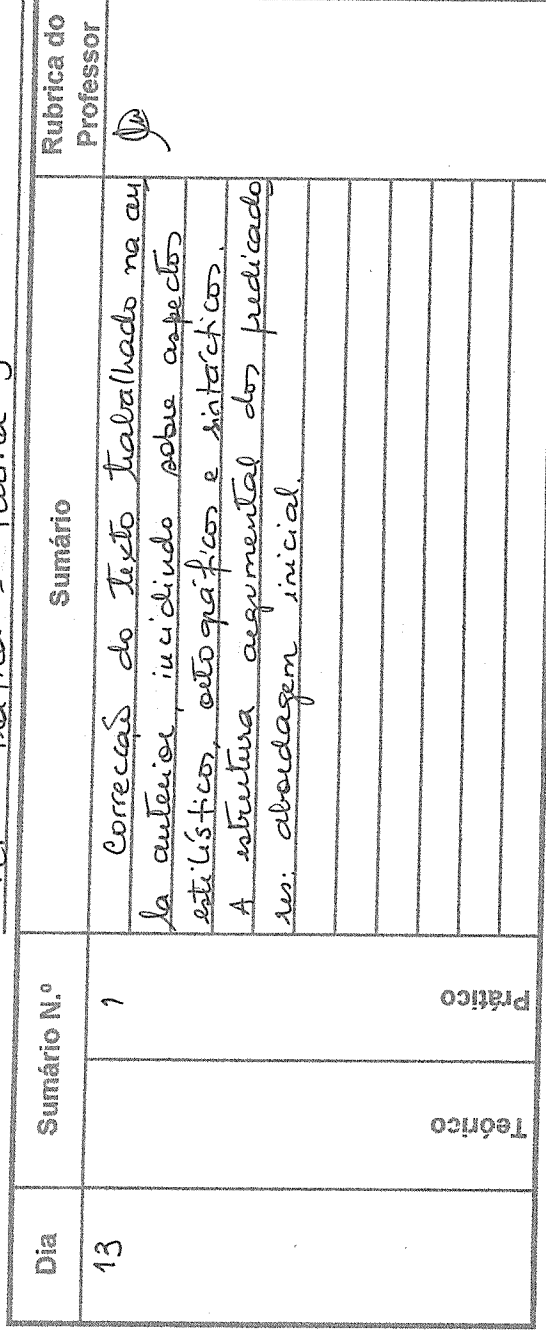 Dia
Sumário N.º
Sumário
Rubrica do
Professor
Teórico
Prático
13
1
Correcção do texto trabalhado na au
la anterior, incidindo sobre aspectos
estilísticos, ortográficos e sintácticos.
A estrutura argumental dos predicado
res: abordagem inicial.